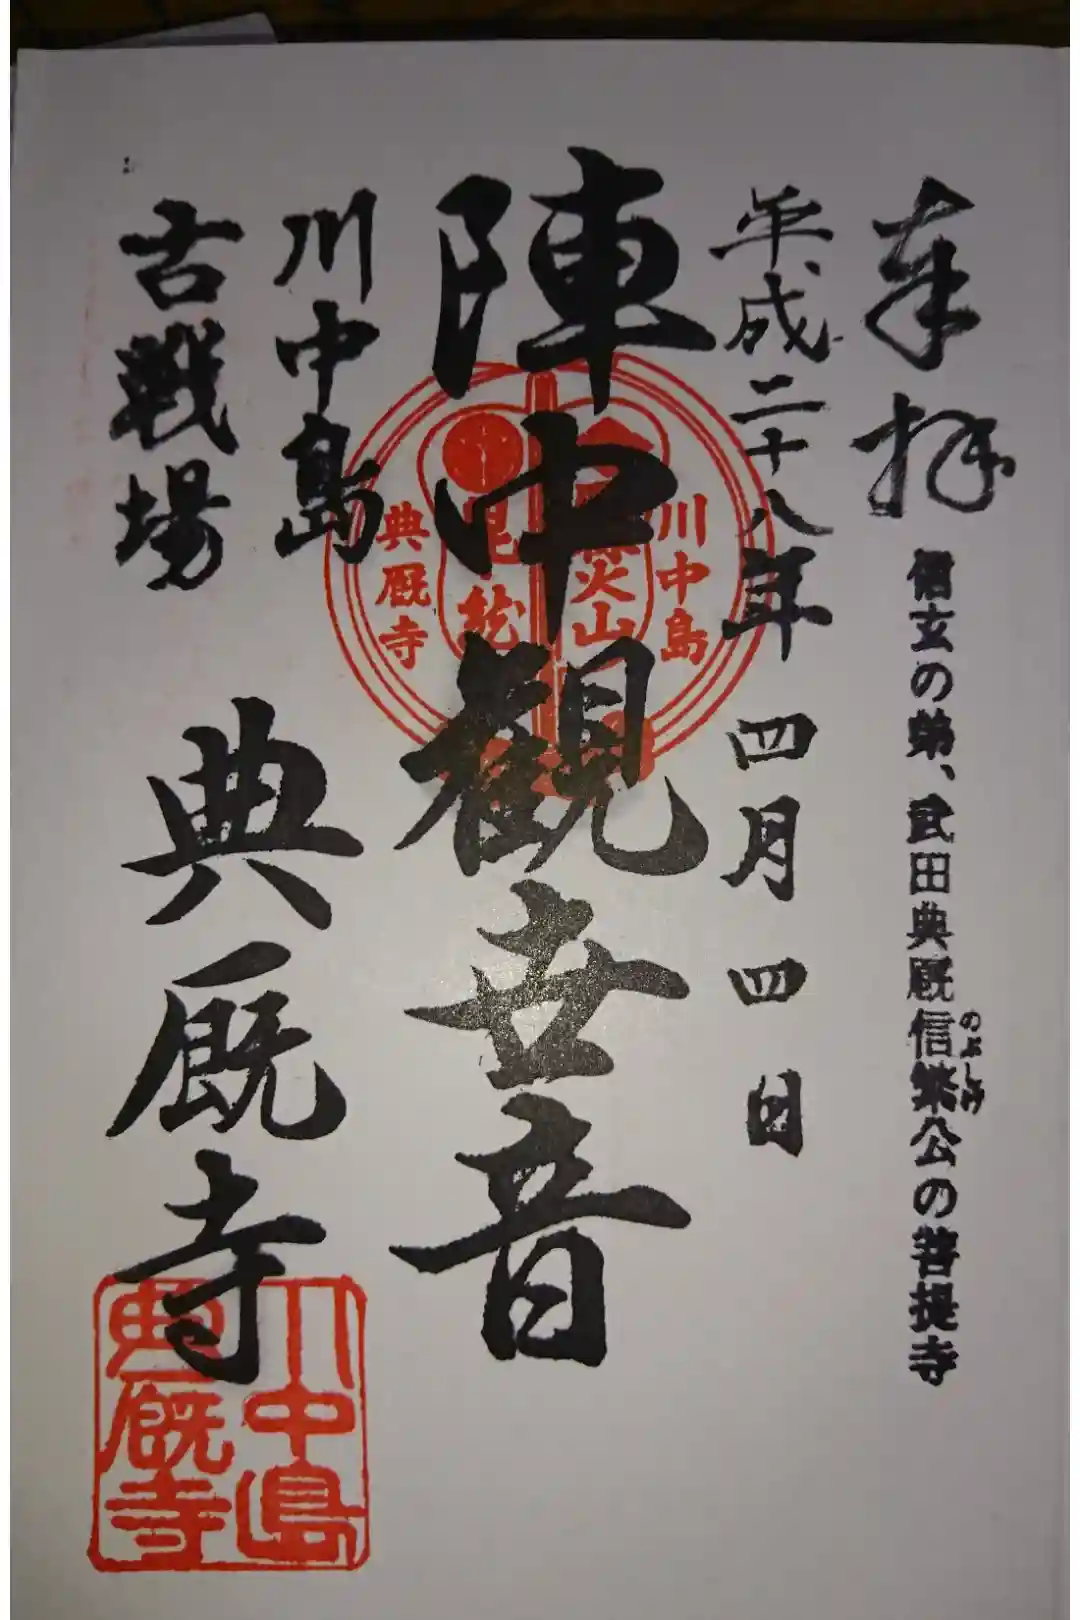 奉拝
信玄の弟、武田典厩信繁公の菩提寺
のぶしげ
平成二十八年 四月 四日
陣中観世音
川中島
火山
毘龍
典厩寺
川中島
古戦場
典厩寺
川中島
典厩寺